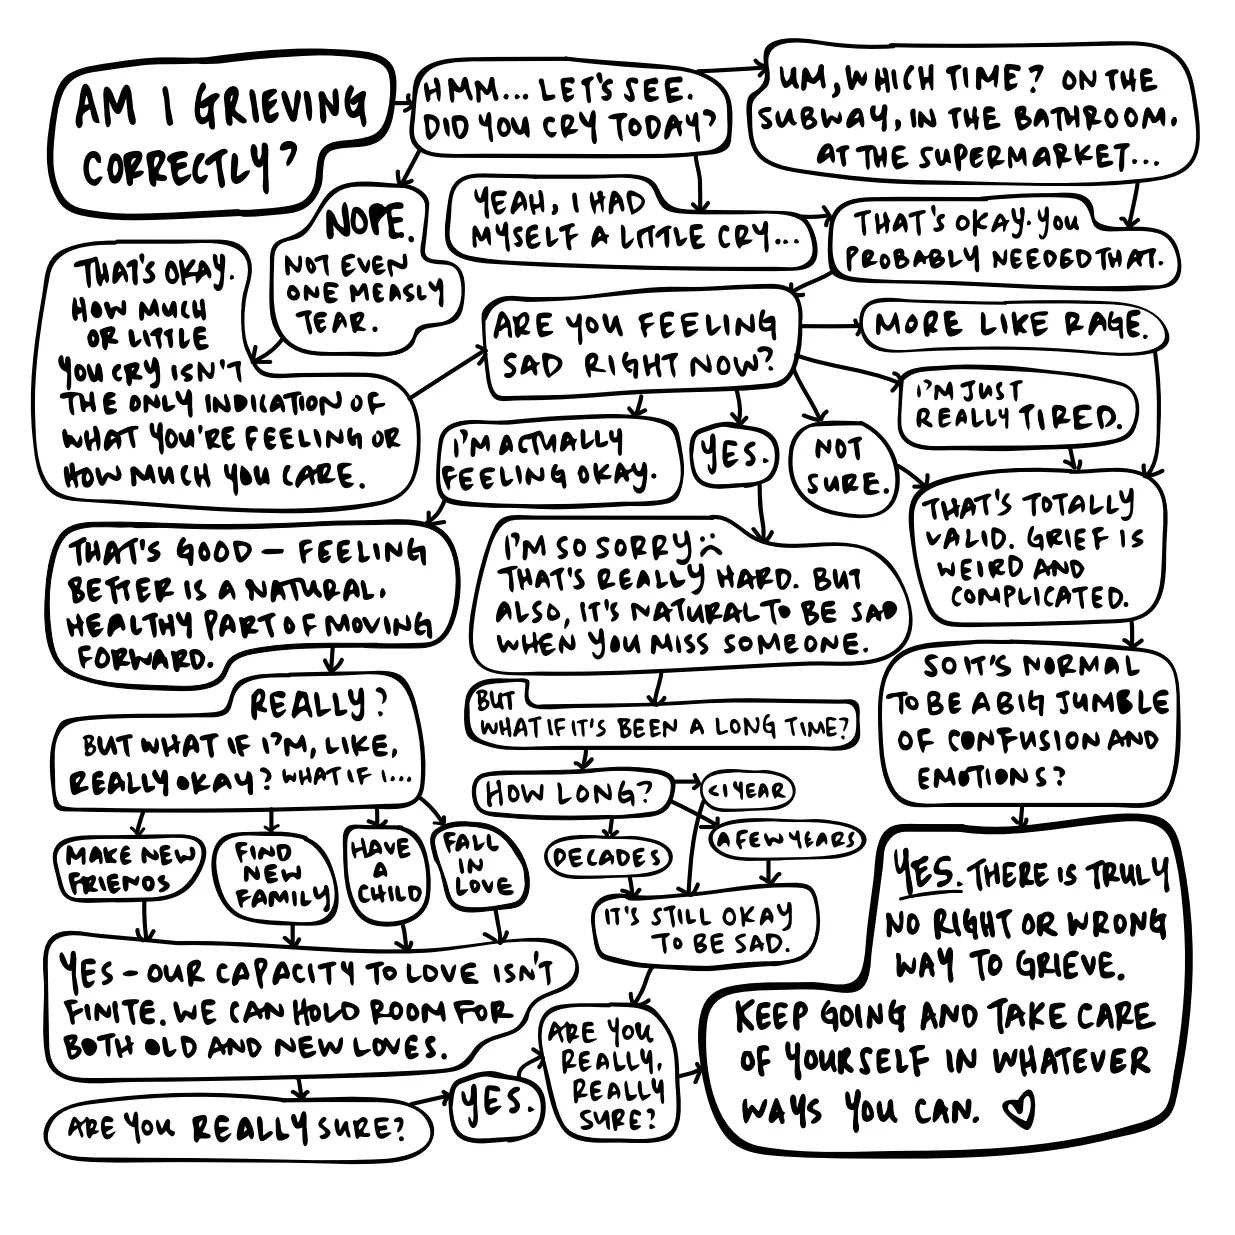 AM I GRIEVING
CORRECTLY?
HMM... LET'S SEE.
DID YOU CRY TODAY?
UM, WHICH TIME? ON THE
SUBWAY, IN THE BATHROOM.
AT THE SUPERMARKET...
NOPE.
NOT EVEN
ONE MEASLY
TEAR.
YEAH, I HAD
MYSELF A LITTLE CRY...
THAT'S OKAY. YOU
PROBABLY NEEDED THAT.
THAT'S OKAY.
HOW MUCH
OR LITTLE
YOU CRY ISN'T
THE ONLY INDICATION OF
WHAT YOU'RE FEELING OR
HOW MUCH YOU CARE.
ARE YOU FEELING
SAD RIGHT NOW?
MORE LIKE RAGE.
I'M JUST
REALLY TIRED.
I'M ACTUALLY
FEELING OKAY.
YES.
NOT
SURE.
THAT'S TOTALLY
VALID. GRIEF IS
WEIRD AND
COMPLICATED.
THAT'S GOOD – FEELING
BETTER IS A NATURAL.
HEALTHY PART OF MOVING
FORWARD.
I'M SO SORRY :(
THAT'S REALLY HARD. BUT
ALSO, IT'S NATURAL TO BE SAD
WHEN YOU MISS SOMEONE.
SO IT'S NORMAL
TO BE A BIG JUMBLE
OF CONFUSION AND
EMOTIONS?
REALLY?
BUT WHAT IF I'M, LIKE,
REALLY OKAY? WHAT IF I...
BUT
WHAT IF IT'S BEEN A LONG TIME?
HOW LONG?
<1 YEAR
A FEW YEARS
DECADES
MAKE NEW
FRIENDS
FIND
NEW
FAMILY
HAVE
A
CHILD
FALL
IN
LOVE
IT'S STILL OKAY
TO BE SAD.
YES – OUR CAPACITY TO LOVE ISN'T
FINITE. WE CAN HOLD ROOM FOR
BOTH OLD AND NEW LOVES.
ARE YOU REALLY SURE?
YES.
ARE YOU
REALLY,
REALLY
SURE?
YES. THERE IS TRULY
NO RIGHT OR WRONG
WAY TO GRIEVE.
KEEP GOING AND TAKE CARE
OF YOURSELF IN WHATEVER
WAYS YOU CAN. ♡